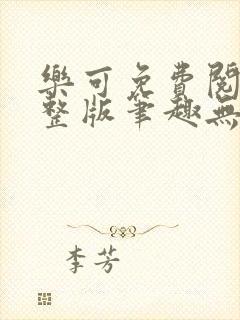 樂可免費閱
整版筆趣無
李芳